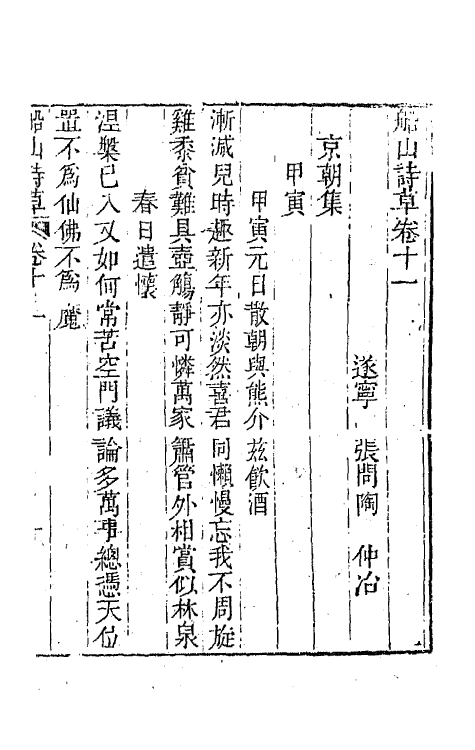 船山詩草卷十一
遂寧 張問陶 仲冶
京朝集
甲寅
甲寅元日散朝與熊介茲飲酒
漸減兒時趣新年亦淡然喜君同懶慢忘我不周旋
雞黍貧難具壺觴靜可憐萬家簫管外相賞似林泉
春日遣懷
涅槃已入又如何常苦空門議論多萬事總憑天位
置不為仙佛不為魔
船山詩草 卷十一